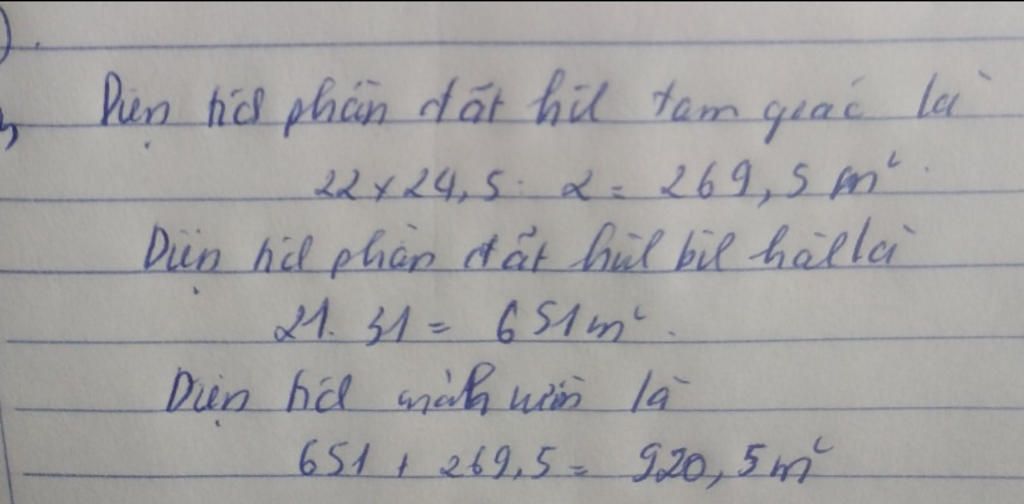 Diện tích phần đất hình tam giác là
22 x 24,5 : 2 = 269,5 m²
Diện tích phần đất hình bình hành là
21. 31 = 651 m².
Diện tích mảnh vườn là
651 + 269,5 = 920,5 m²